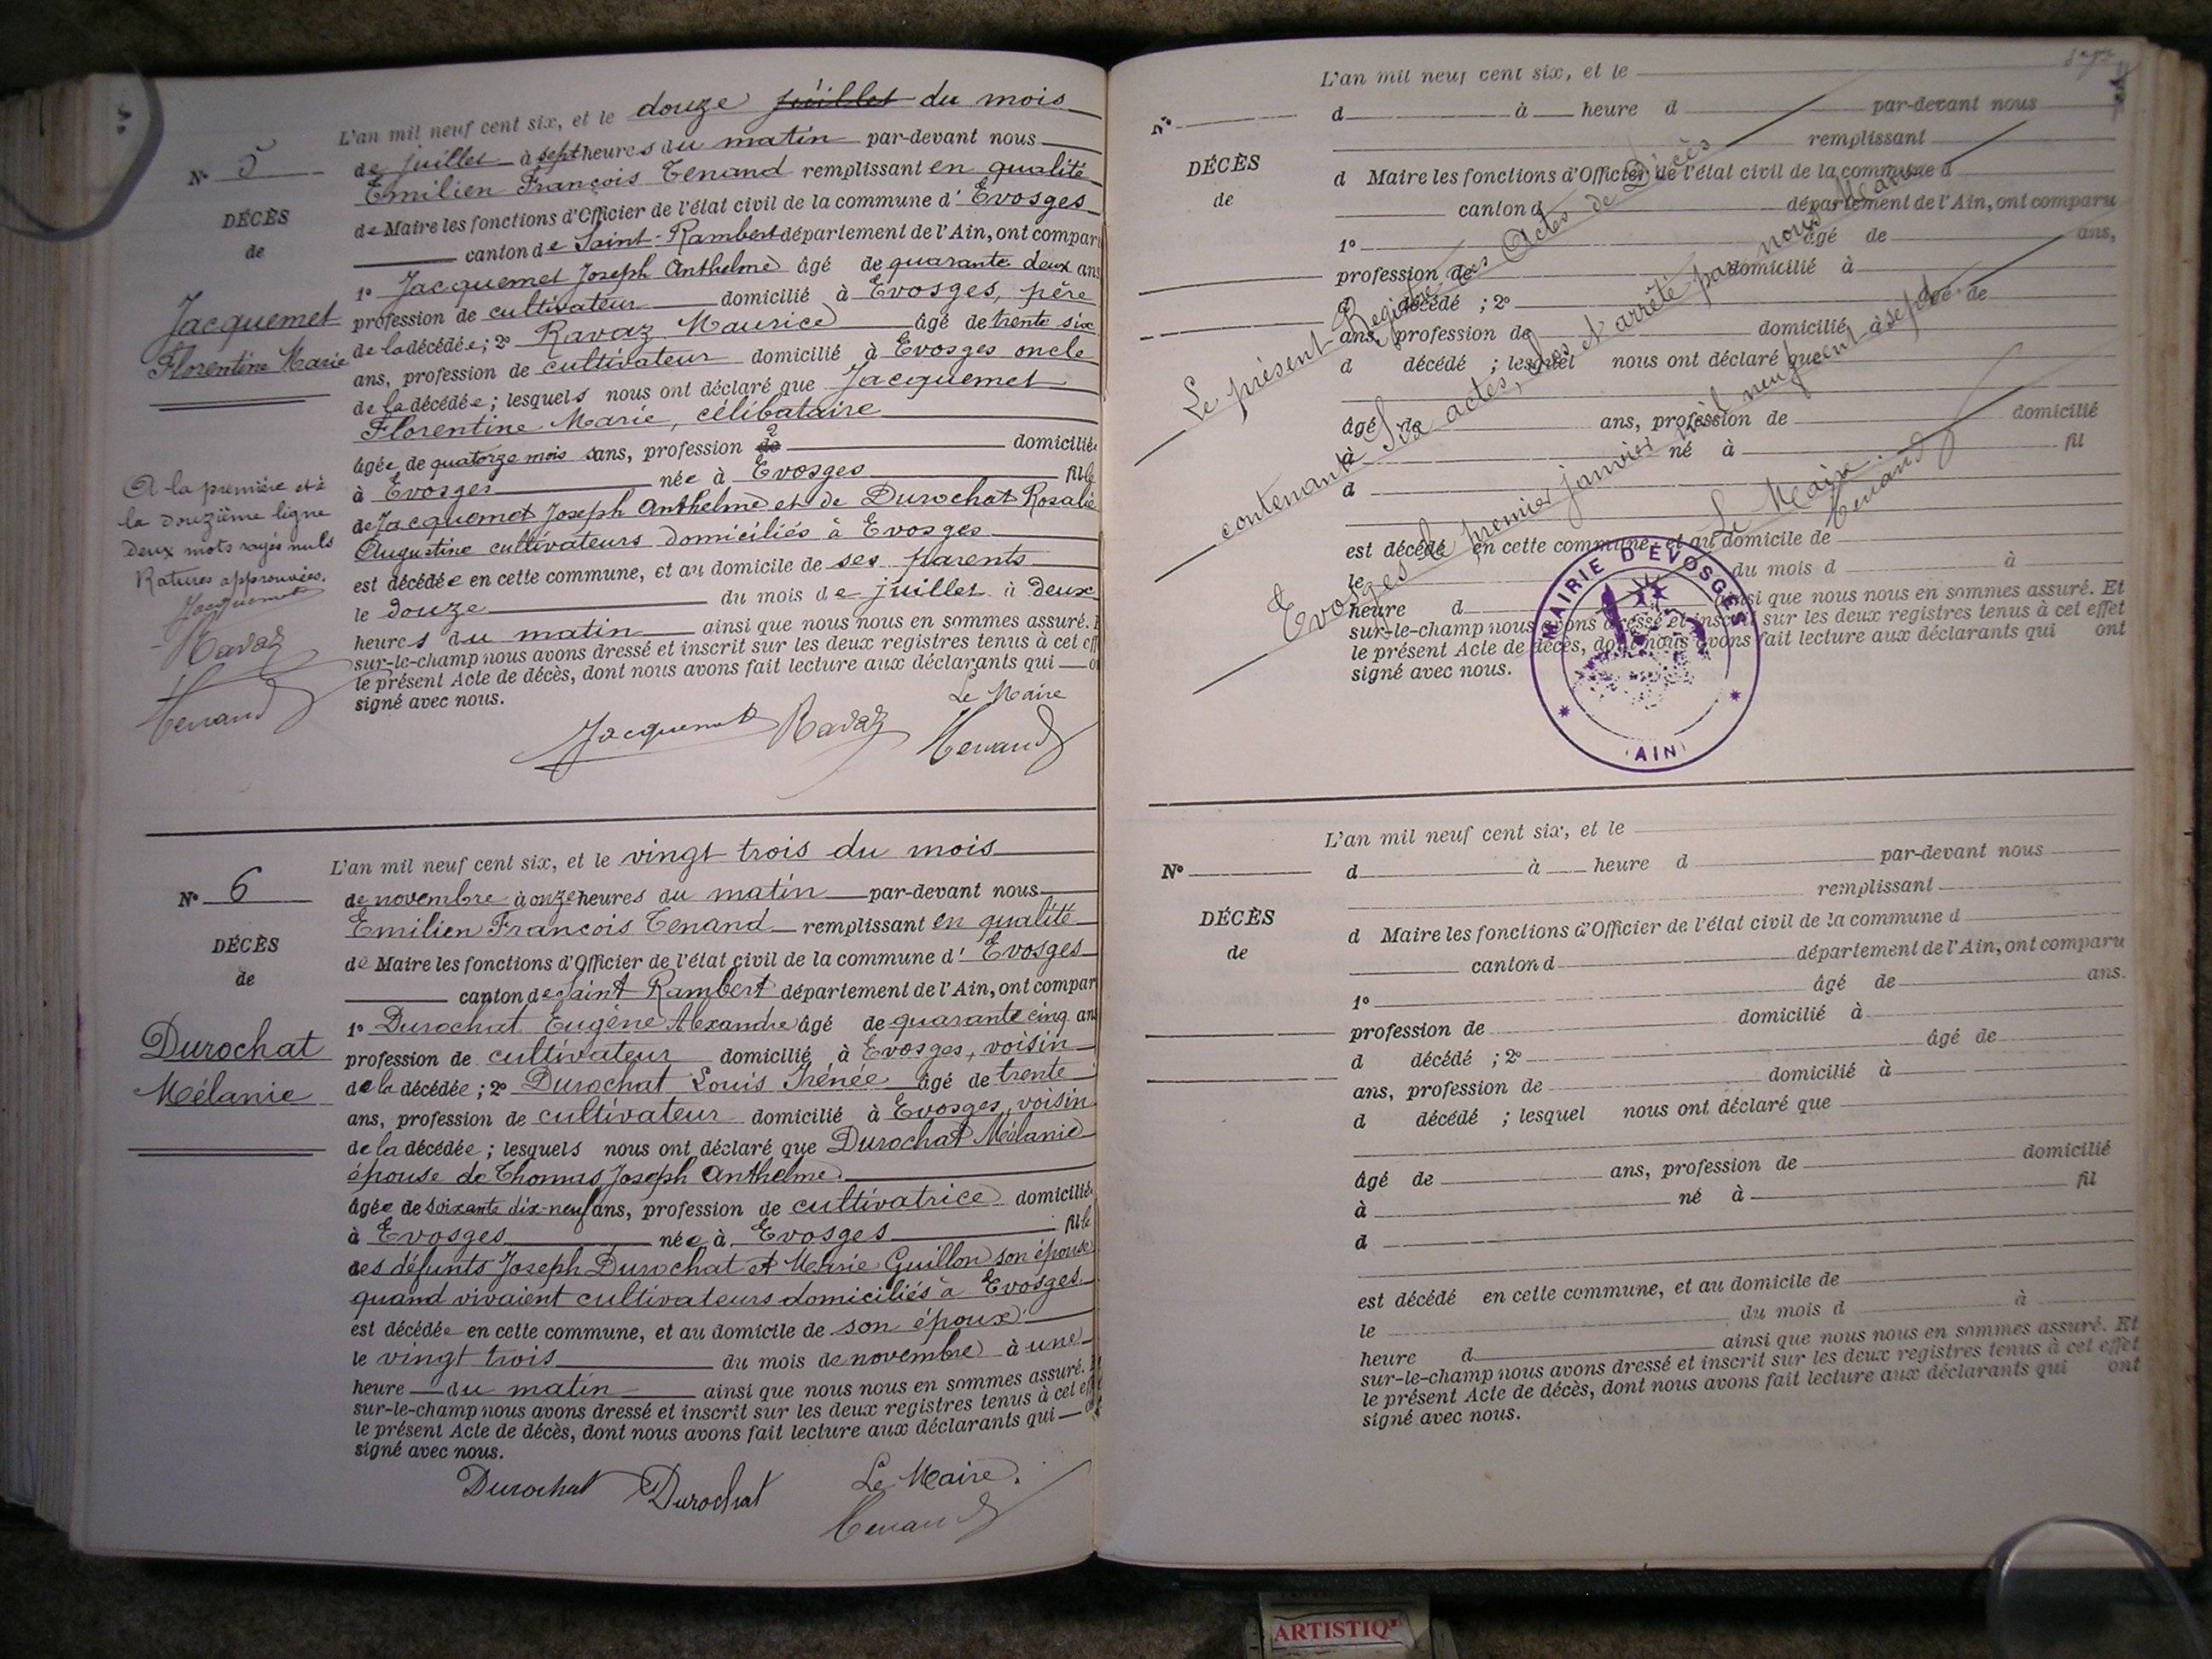 L'an mil neuf cent six, et le douze juillet du mois
N° 5
de juillet à sept heures du matin par-devant nous
Emilien François Tenand remplissant en qualité
DÉCÈS
de Maire les fonctions d'Officier de l'état civil de la commune d' Evosges
de
canton de Saint-Rambert département de l'Ain, ont compar
1° Jacquemet Joseph Anthelme âgé de quarante deux ans
Jacquemet
profession de cultivateur domicilié à Evosges, père
Florentine Marie
de la décédée; 2° Ravaz Maurice âgé de trente six
ans, profession de cultivateur domicilié à Evosges oncle
de la décédée; lesquels nous ont déclaré que Jacquemet
Florentine Marie, célibataire
âgée de quatorze mois ans, profession de domiciliée
à Evosges née à Evosges fille
de Jacquemet Joseph Anthelme et de Durochat Rosalie
Augustine cultivateurs domiciliés à Evosges
est décédée en cette commune, et au domicile de ses parents
le douze du mois de juillet à deux
heures du matin ainsi que nous nous en sommes assuré.
sur-le-champ nous avons dressé et inscrit sur les deux registres tenus à cet eff
le présent Acte de décès, dont nous avons fait lecture aux déclarants qui
signé avec nous.
Le Maire
Jacquemet Ravaz Tenand
A la première et à
la douzième ligne
deux mots rayés nuls
Ratures approuvées.
Jacquemet
Ravaz
Tenand
L'an mil neuf cent six, et le vingt trois du mois
N° 6
de novembre à onze heures du matin par-devant nous
Emilien François Tenand remplissant en qualité
DÉCÈS
de Maire les fonctions d'Officier de l'état civil de la commune d' Evosges
de
canton de Saint Rambert département de l'Ain, ont compar
1° Durochat Eugène Alexandre âgé de quarante cinq an
Durochat
profession de cultivateur domicilié à Evosges, voisin
Mélanie
de la décédée; 2° Durochat Louis Irénée âgé de trente
ans, profession de cultivateur domicilié à Evosges, voisin
de la décédée; lesquels nous ont déclaré que Durochat Mélanie
épouse de Thomas Joseph Anthelme
âgée de soixante dix-neuf ans, profession de cultivatrice domiciliée
à Evosges née à Evosges fille
des défunts Joseph Durochat et Marie Guillon son épouse
quand vivaient cultivateurs domiciliés à Evosges
est décédée en cette commune, et au domicile de son époux
le vingt trois du mois de novembre à une
heure du matin ainsi que nous nous en sommes assuré.
sur-le-champ nous avons dressé et inscrit sur les deux registres tenus à cet eff
le présent Acte de décès, dont nous avons fait lecture aux déclarants qui
signé avec nous.
Durochat Durochat Le Maire.
Tenand
L'an mil neuf cent six, et le
N°
d à heure d par-devant nous
remplissant
DÉCÈS
d Maire les fonctions d'Officier de l'état civil de la commune d
de
canton d département de l'Ain, ont comparu
1° âgé de ans,
profession de domicilié à
d décédé ; 2° âgé de
ans, profession de domicilié à
d décédé ; lesquel nous ont déclaré que
âgé de ans, profession de domicilié
à né à fil
d
est décédé en cette commune, et au domicile de
le du mois d à
heure d ainsi que nous nous en sommes assuré. Et
sur-le-champ nous avons dressé et inscrit sur les deux registres tenus à cet effet
le présent Acte de décès, dont nous avons fait lecture aux déclarants qui ont
signé avec nous.
Le présent Registre des Actes de Décès
contenant Six actes, clos et arrêté par nous Maire
Evosges le premier janvier mil neuf cent sept
Le Maire
Tenand
MAIRIE D'EVOSGES
(AIN)
L'an mil neuf cent six, et le
N°
d à heure d par-devant nous
remplissant
DÉCÈS
d Maire les fonctions d'Officier de l'état civil de la commune d
de
canton d département de l'Ain, ont comparu
1° âgé de ans.
profession de domicilié à
d décédé ; 2° âgé de
ans, profession de domicilié à
d décédé ; lesquel nous ont déclaré que
âgé de ans, profession de domicilié
à né à fil
d
est décédé en cette commune, et au domicile de
le du mois d à
heure d ainsi que nous nous en sommes assuré. Et
sur-le-champ nous avons dressé et inscrit sur les deux registres tenus à cet effet
le présent Acte de décès, dont nous avons fait lecture aux déclarants qui ont
signé avec nous.
ARTISTIQ